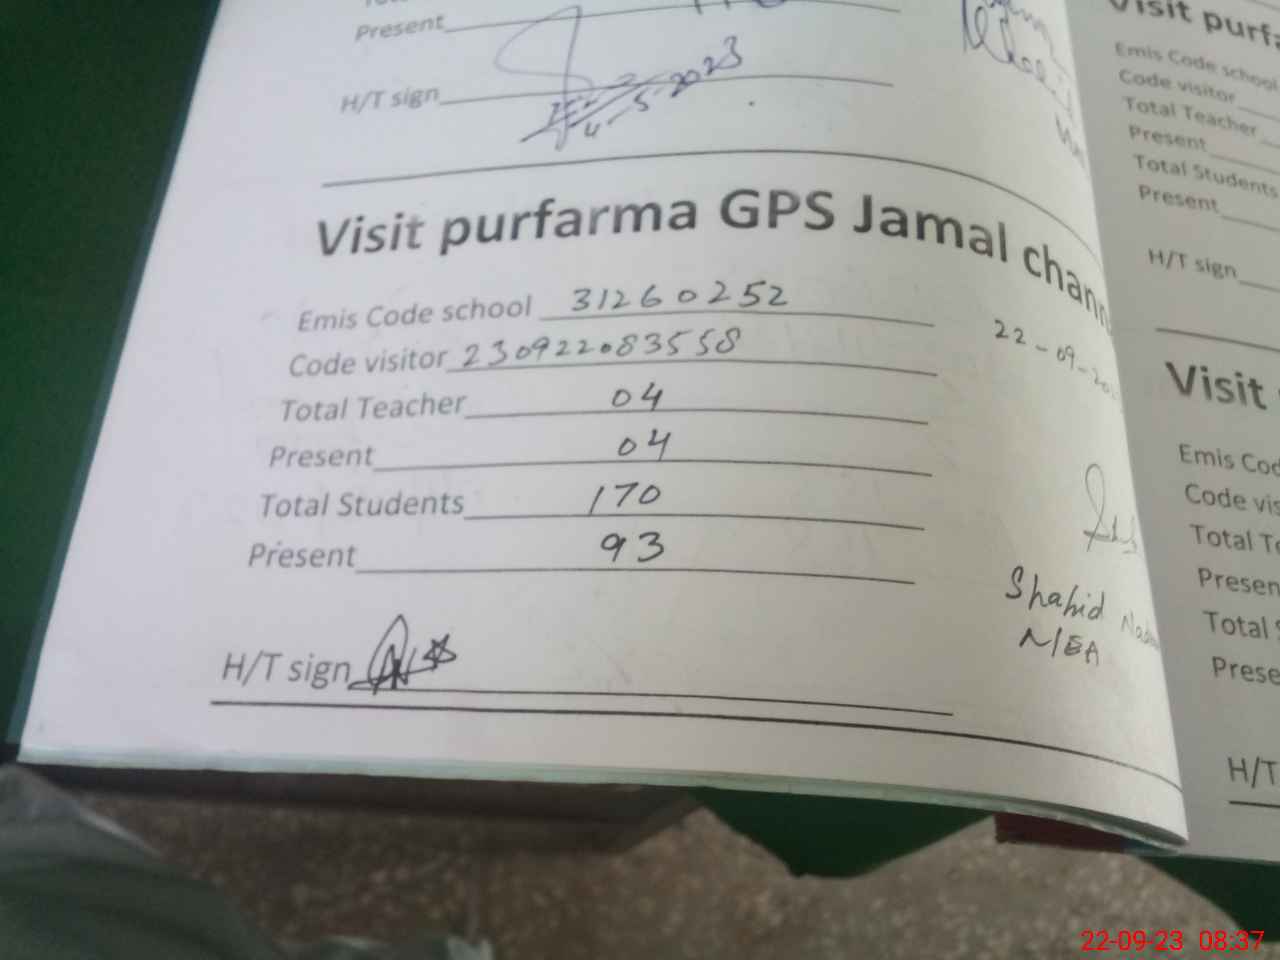 Present
H/T sign
4-5-2023
Visit purfarma GPS Jamal chann
Emis Code school 31260252
Code visitor 230922083558
22-09-20
Total Teacher 04
Present 04
Total Students 170
Present 93
Shahid
N/EA
H/T sign
Visit purfa
Emis Code school
Code visitor
Total Teacher
Present
Total Students
Present
H/T sign
Visit
Emis Cod
Code vis
Total Te
Presen
Total S
Prese
H/T
22-09-23 08:37